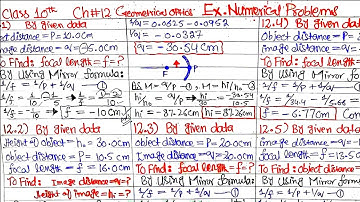 Class 10th Ch#12 Geometrical Optics Ex. Numerical Problems
12.1) By given data
object distance = P = 10.0cm
image distance = q = -5.0cm
To Find: focal length = f = ?
By Using Mirror formula:
f = -10cm
1/q = 0.0625 - 0.0952
1/q = -0.0327
q = -30.54 cm
F P
M = q/p → ①, M = hi/ho → ②
hi = -87.26cm
12.4) By given data
object distance = P = 34.4
image distance = q = -5.66
To Find: focal length = f = ?
By Using Mirror formula:
1/f = 1/q + 1/p → ①
f = -6.77cm
12.2) By given data
Height of object = ho = 30.0cm
object distance = P = 10.5 cm
focal length = f = 16.0cm
To Find: Image distance = q = ?
Height of image = hi = ?
12.3) By given data
object distance = P = 20.0cm
Image distance = q = 20.0cm
To Find: focal length = f = ?
By Using Mirror formula:
1/f = 1/q + 1/p → ①
12.5) By given data
image distance = q =
focal length = f = -13.5
To Find: object distance
By Using Mirror formula
1/f = 1/q + 1/p → ①